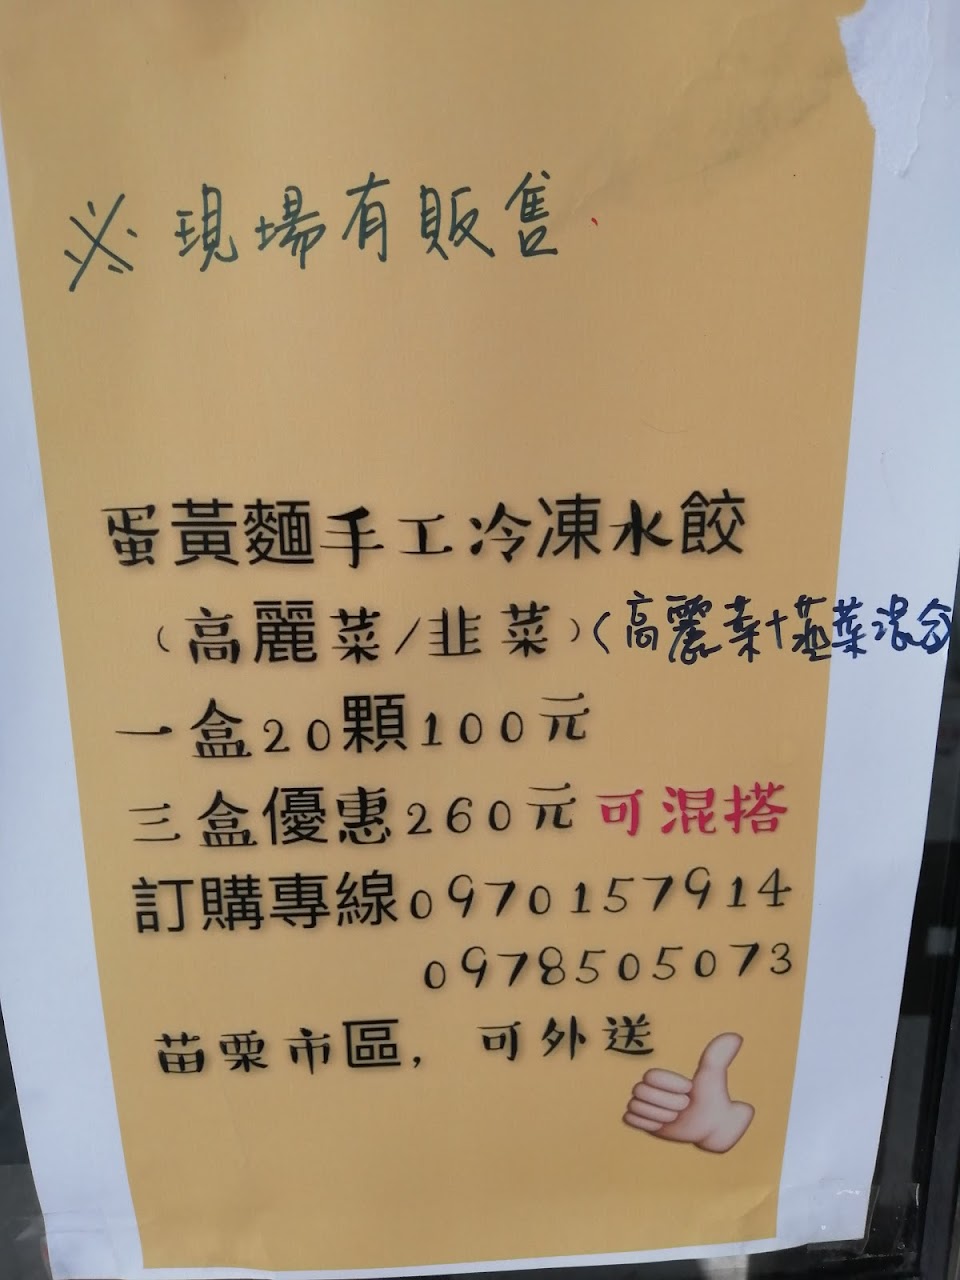 ※現場有販售
蛋黃麵手工冷凍水餃
(高麗菜/韭菜)(高麗菜+韮菜混合
一盒20顆100元
三盒優惠260元可混搭
訂購專線0970157914
0978505073
苗栗市區，可外送